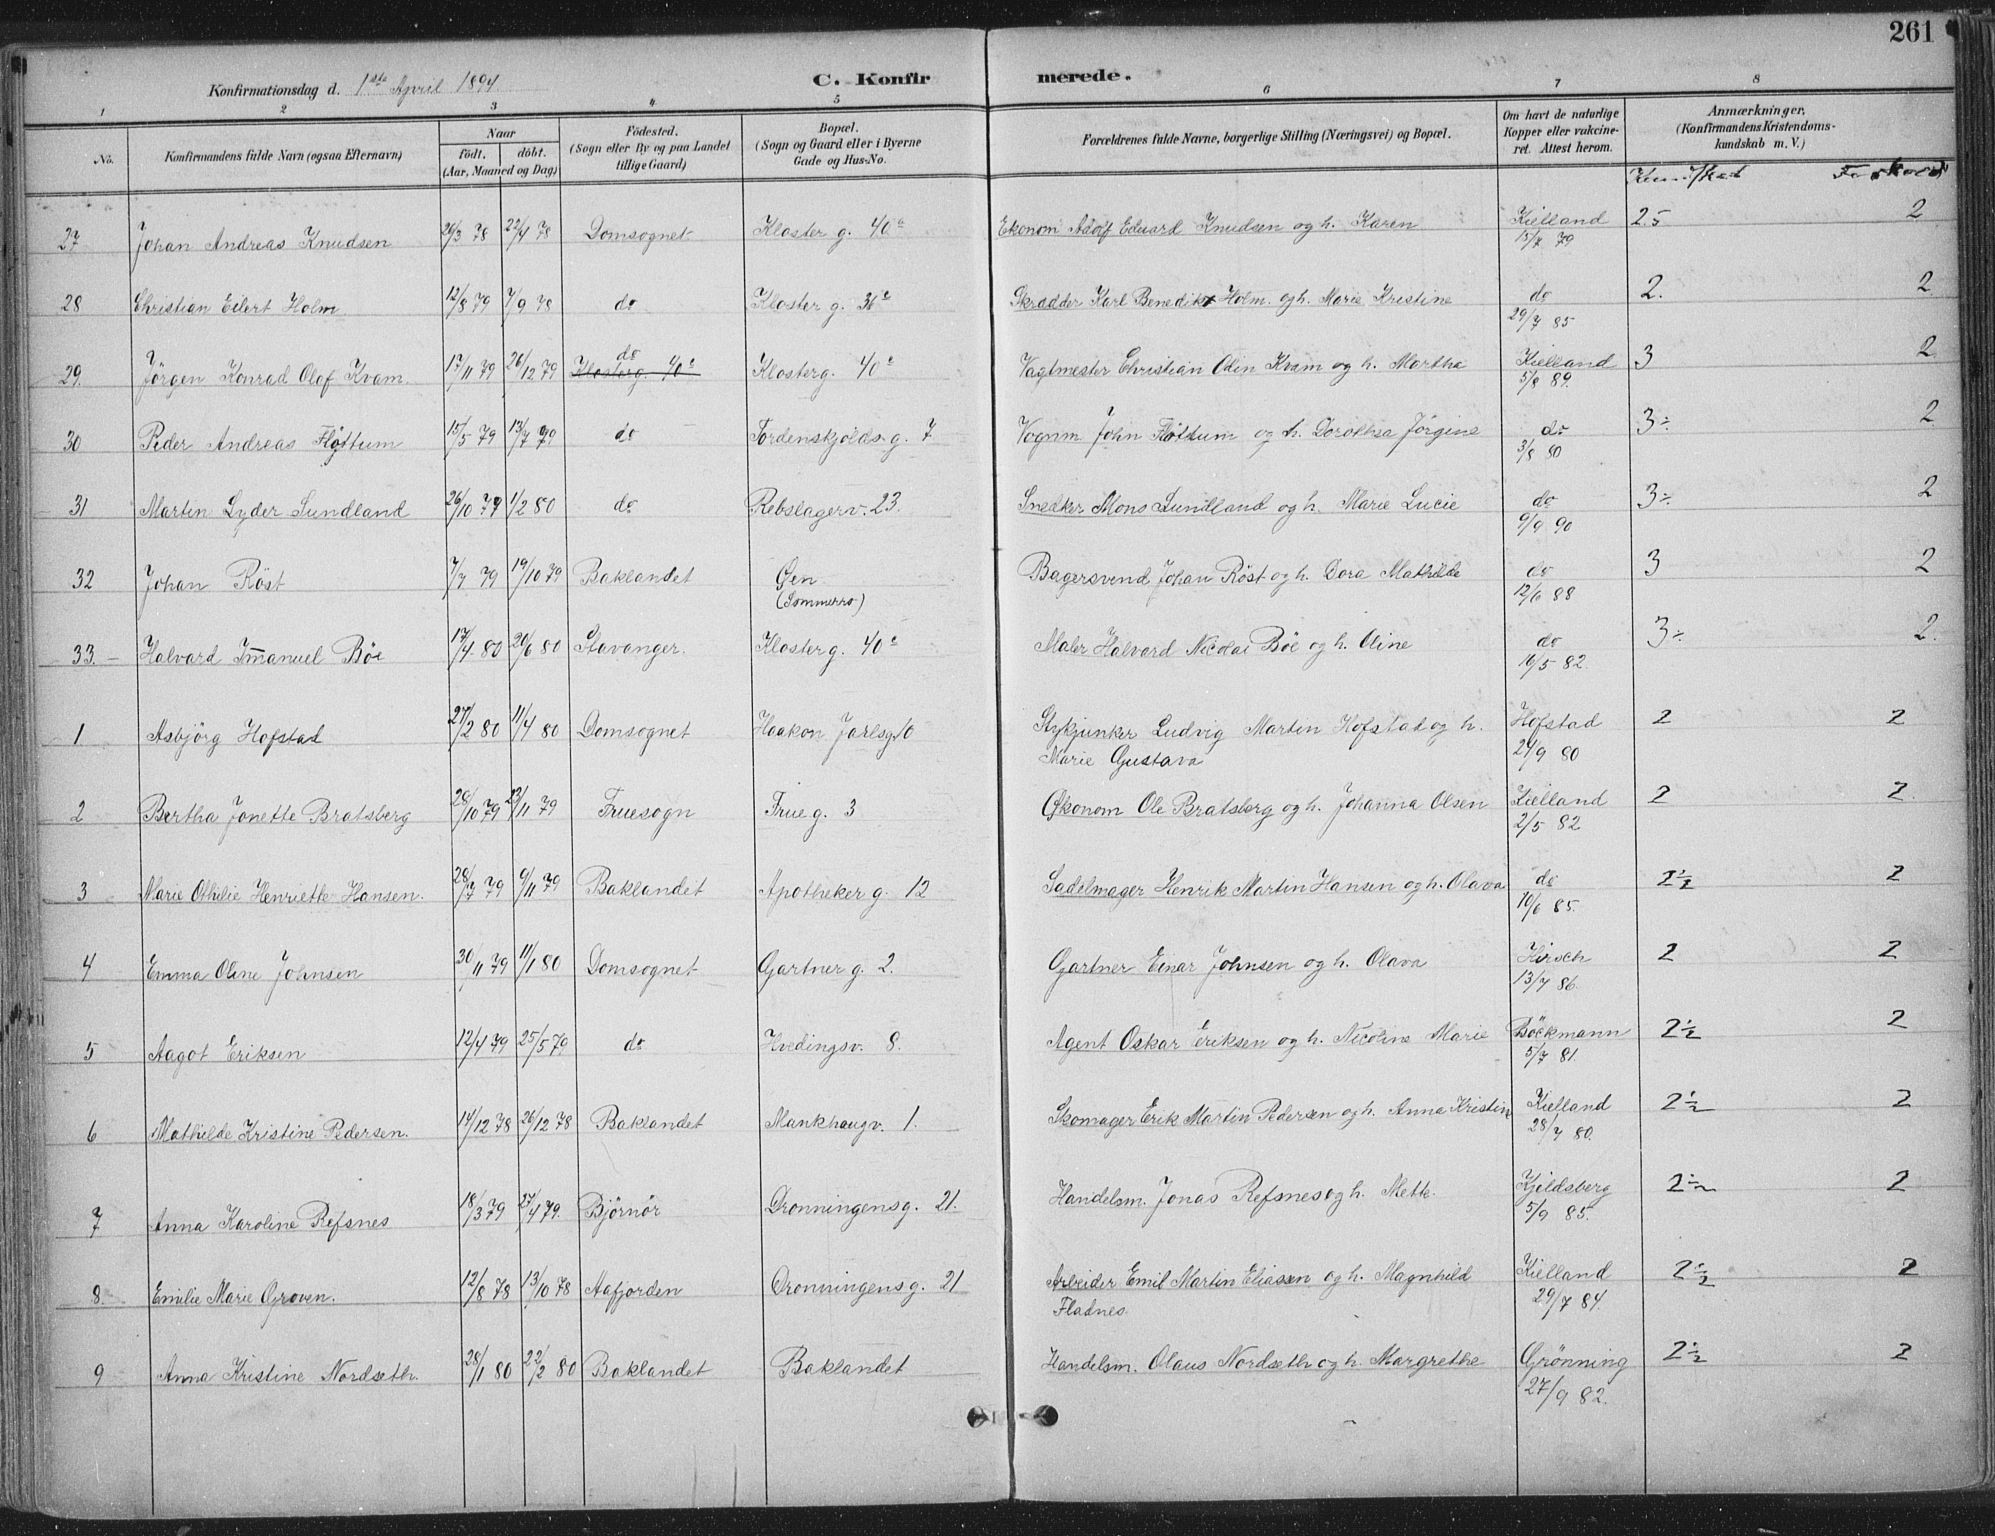 261
Konfirmationsdag d. 1ste April 1894. C. Konfirmerede.
1 2 3 4 5 6 7 8
No. Konfirmandens fulde Navn (ogsaa Efternavn) Naar født. døbt. (Aar, Maaned og Dag) Födested. (Sogn eller By og paa Landet tillige Gaard) Bopæl. (Sogn og Gaard eller i Byerne Gade og Hus-No. Forældrenes fulde Navne, borgerlige Stilling (Næringsvei) og Bopæl. Om havt de naturlige Kopper eller vakcineret. Attest herom. Anmærkninger. (Konfirmandens Kristendomskundskab m. V.)
27 Johan Andreas Knudsen 26/3 78 22/4 78 Domsognet Kloster g. 40c Ekonom Adolf Eduard Knudsen og h. Karen Kielland 2.5 2
15/7 79
28 Christian Eilert Holm 12/8 79 7/9 78 do Kloster g. 36c Skradder Karl Benedikt Holm og h. Marie Kristine do 2. 2
29/7 85
29. Jörgen Konrad Olaf Kvam. 17/11 79 26/12 79 do Klosterg. 40c Klosterg. 40c Vagtmester Christian Odin Kvam og h. Marthe Kielland 3 2
5/8 89.
30 Peder Andreas Fløttum 15/5 79 13/7 79 do Tordenskjolds g. 7 Vognm John Fløttum og h. Dorothea Jörgine do 3÷ 2
3/8 80
31 Martin Lyder Sundland 26/10 79 1/2 80 do Rebslagerv. 23. Snedker Mons Sundland og h. Marie Lucie do 3÷ 2
9/9 90
32 Johan Röst 7/7 79 19/10 79 Baklandet Øen (Sommerro) Bagersvend Johan Röst og h. Dora Mathilde do 3 2
12/6 88
33. Halvard Immanuel Böe 17/4 80 20/6 80 Stavanger. Kloster g. 40c Maler Halvard Nicolai Böe og h. Oline do 3÷ 2.
16/5 82.
1 Asbjörg Hofstad 27/2 80 11/4 80 Domsognet Haakon Jarlsg. 10 Stykjunker Ludvig Martin Hofstad og h. Hofstad 2 2
Marie Gustava 24/9 80
2 Bertha Jonette Bratsberg 28/10 79 23/11 79 Fruesogn Frue g. 3 Økonom Ole Bratsberg og h. Johanna Olsen Kielland 2 2.
2/5 82
3 Marie Othilie Henriette Hansen. 28/7 79 9/11 79 Baklandet Apotheker g. 12 Sadelmager Henrik Martin Hansen og h. Olava do 2½ 2
10/6 85.
4 Emma Oline Johnsen 30/11 79 11/1 80 Domsognet Gartner g. 2. Gartner Einar Johnsen og h. Olava Kirsch 2 2
13/7 86.
5 Aagot Eriksen 12/4 79 25/5 79 do Hvedingsv. 8. Agent Oskar Eriksen og h. Nicoline Marie Böckmann 2½ 2
5/7 81.
6 Mathilde Kristine Pedersen. 14/12 78 26/12 78 Baklandet Mankhaugv. 1. Skomager Erik Martin Pedersen og h. Anna Kristine Kielland 2½ 2
28/7 80.
7 Anna Karoline Refsnes 18/3 79 27/4 79. Björnör Dronningensg. 21. Handelsm. Jonas Refsnes og h. Mette. Kjeldsberg 2½ 2
5/9 85.
8. Emilie Marie Groven. 12/8 78 13/10 78 Aafjorden Dronningensg. 21 Arbeider Emil Martin Eliasen og h. Magnhild Kielland 2½ 2
Fladnes. 29/7 84.
9 Anna Kristine Nordseth. 28/1 80 22/2 80 Baklandet Baklandet Handelsm. Olaus Nordseth og h. Margrethe Grönning 2½ 2
27/9 82.